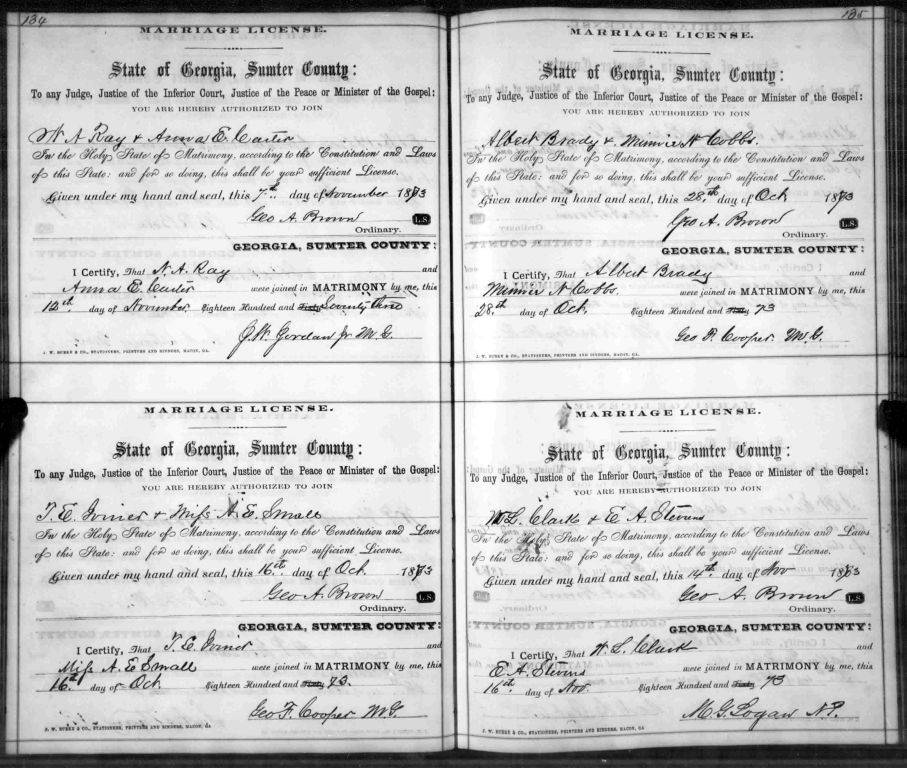 134
MARRIAGE LICENSE.
State of Georgia, Sumter County:
To any Judge, Justice of the Inferior Court, Justice of the Peace or Minister of the Gospel:
YOU ARE HEREBY AUTHORIZED TO JOIN
W A Ray & Anna E. Carter
In the Holy State of Matrimony, according to the Constitution and Laws
of this State: and for so doing, this shall be your sufficient License.
Given under my hand and seal, this 7th day of November 1873
Geo A. Brown L.S.
Ordinary.
GEORGIA, SUMTER COUNTY:
I Certify, That W. A. Ray and
Anna E. Carter were joined in MATRIMONY by me, this
12th day of November Eighteen Hundred and Sixty Seventy three
J. W. Jordan Jr M.G.
J. W. BURKE & CO., STATIONERS, PRINTERS AND BINDERS, MACON, GA.
MARRIAGE LICENSE.
State of Georgia, Sumter County:
To any Judge, Justice of the Inferior Court, Justice of the Peace or Minister of the Gospel:
YOU ARE HEREBY AUTHORIZED TO JOIN
T. E. Joiner & Miss A. E. Small
In the Holy State of Matrimony, according to the Constitution and Laws
of this State: and for so doing, this shall be your sufficient License.
Given under my hand and seal, this 16th day of Oct. 1873
Geo A. Brown L.S.
Ordinary.
GEORGIA, SUMTER COUNTY:
I Certify, That T. E. Joiner and
Miss A. E Small were joined in MATRIMONY by me, this
16th day of Oct Eighteen Hundred and Sixty 73.
Geo F. Cooper M.G.
J. W. BURKE & CO., STATIONERS, PRINTERS AND BINDERS, MACON, GA
135
MARRIAGE LICENSE.
State of Georgia, Sumter County:
To any Judge, Justice of the Inferior Court, Justice of the Peace or Minister of the Gospel:
YOU ARE HEREBY AUTHORIZED TO JOIN
Albert Brady & Minnie N Cobbs.
In the Holy State of Matrimony, according to the Constitution and Laws
of this State: and for so doing, this shall be your sufficient License.
Given under my hand and seal, this 28th day of Oct 1873
Geo A. Brown L.S.
Ordinary.
GEORGIA, SUMTER COUNTY:
I Certify, That Albert Brady and
Minnie N Cobbs. were joined in MATRIMONY by me, this
28th day of Oct. Eighteen Hundred and Sixty 73
Geo F. Cooper M.G.
J. W. BURKE & CO., STATIONERS, PRINTERS AND BINDERS, MACON, GA.
MARRIAGE LICENSE.
State of Georgia, Sumter County:
To any Judge, Justice of the Inferior Court, Justice of the Peace or Minister of the Gospel:
YOU ARE HEREBY AUTHORIZED TO JOIN
W L. Clark & E A. Stevens
In the Holy State of Matrimony, according to the Constitution and Laws
of this State: and for so doing, this shall be your sufficient License.
Given under my hand and seal, this 14th day of Nov 1873
Geo A. Brown L.S.
Ordinary.
GEORGIA, SUMTER COUNTY:
I Certify, That W. L. Clark and
E A. Stevens were joined in MATRIMONY by me, this
16th day of Nov. Eighteen Hundred and Sixty 73
M. G. Logan N.P.
J. W. BURKE & CO., STATIONERS, PRINTERS AND BINDERS, MACON, GA